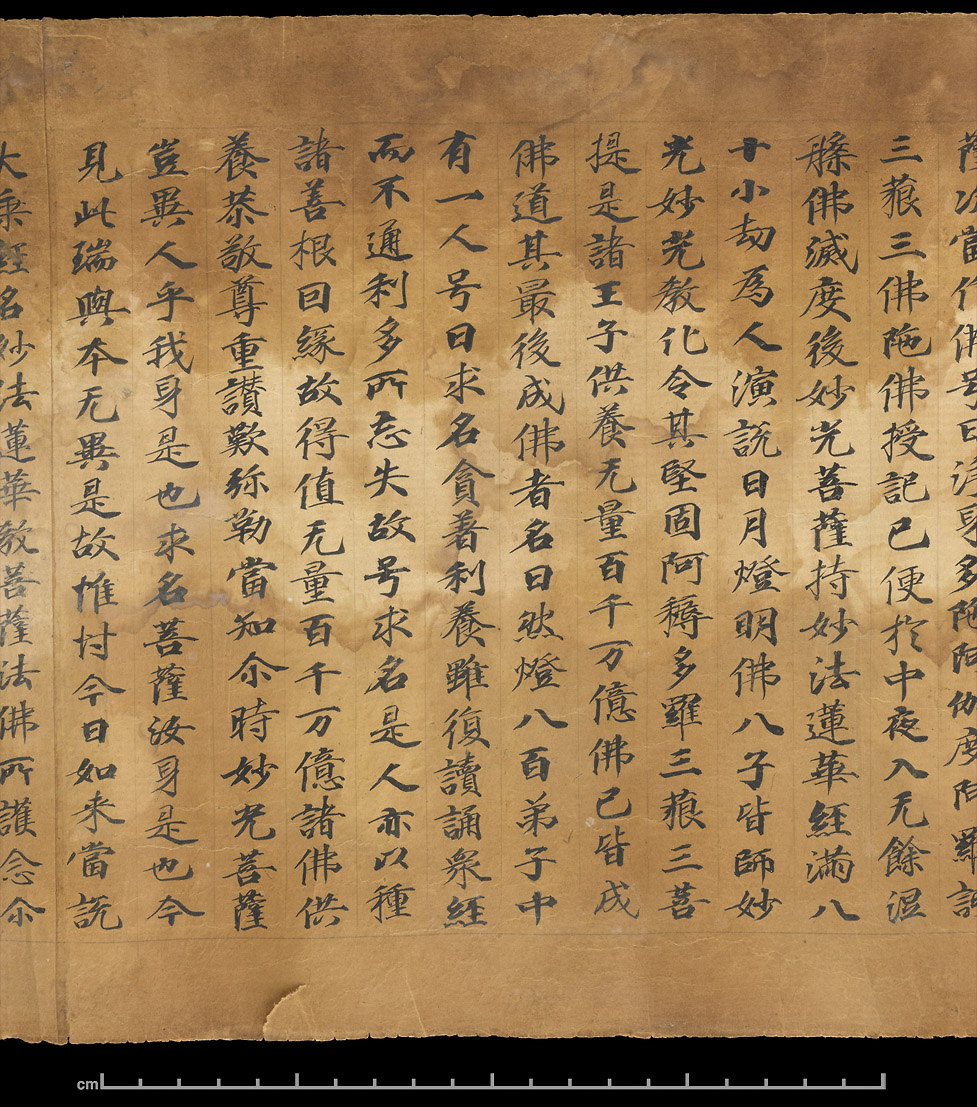 薩次當作佛号曰淨身多陁阿伽度阿羅訶
三藐三佛陁佛授記已便於中夜入无餘涅
槃佛滅度後妙光菩薩持妙法蓮華經滿八
十小劫為人演說日月燈明佛八子皆師妙
光妙光教化令其堅固阿耨多羅三藐三菩
提是諸王子供養无量百千万億佛已皆成
佛道其最後成佛者名曰然燈八百弟子中
有一人号曰求名貪著利養雖復讀誦衆經
而不通利多所忘失故号求名是人亦以種
諸善根因緣故得值无量百千万億諸佛供
養恭敬尊重讃歎弥勒當知尒時妙光菩薩
豈異人乎我身是也求名菩薩汝身是也今
見此瑞與本无異是故惟忖今日如来當說
大乘經名妙法蓮華教菩薩法佛所護念尒
cm